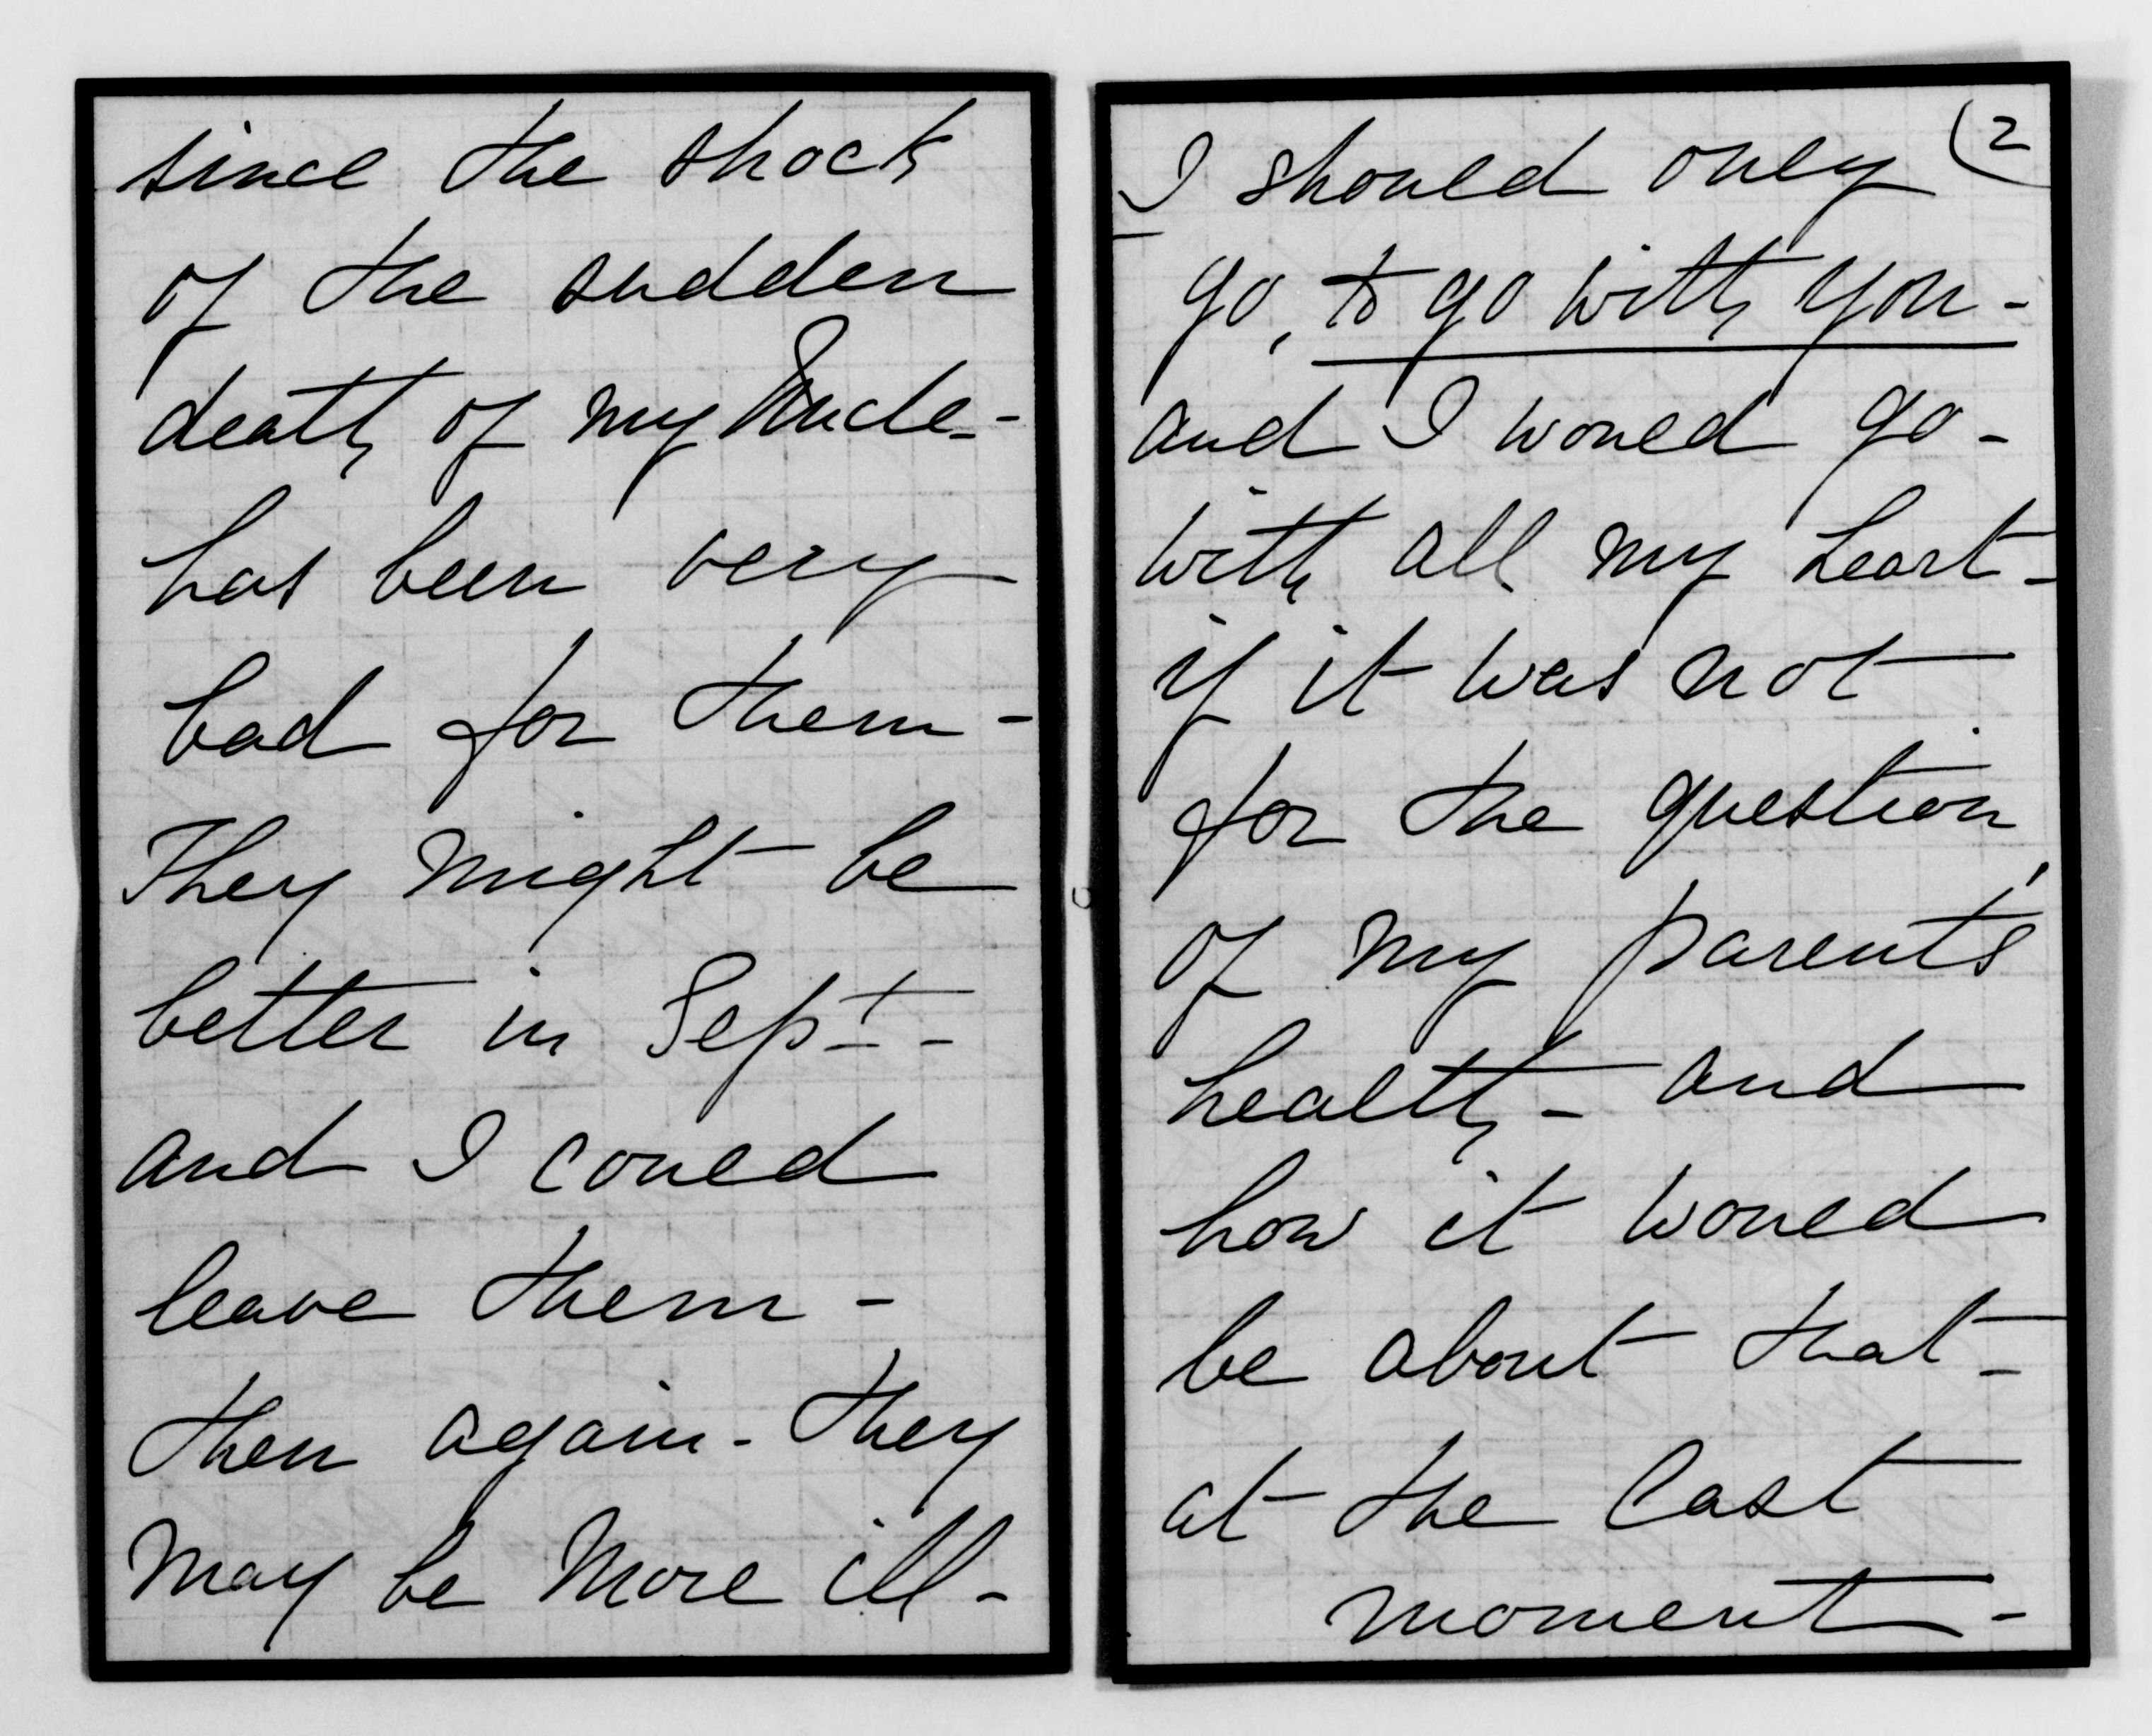 since the shock
of the sudden
death of my Uncle -
has been very
bad for them -
They might be
better in Sept -
and I could
leave them -
then again - they
may be more ill -
(2
I should only
go, to go with you -
and I would go -
with all my heart -
if it was not
for the question
of my parents'
health - and
how it would
be about that -
at the last
moment -